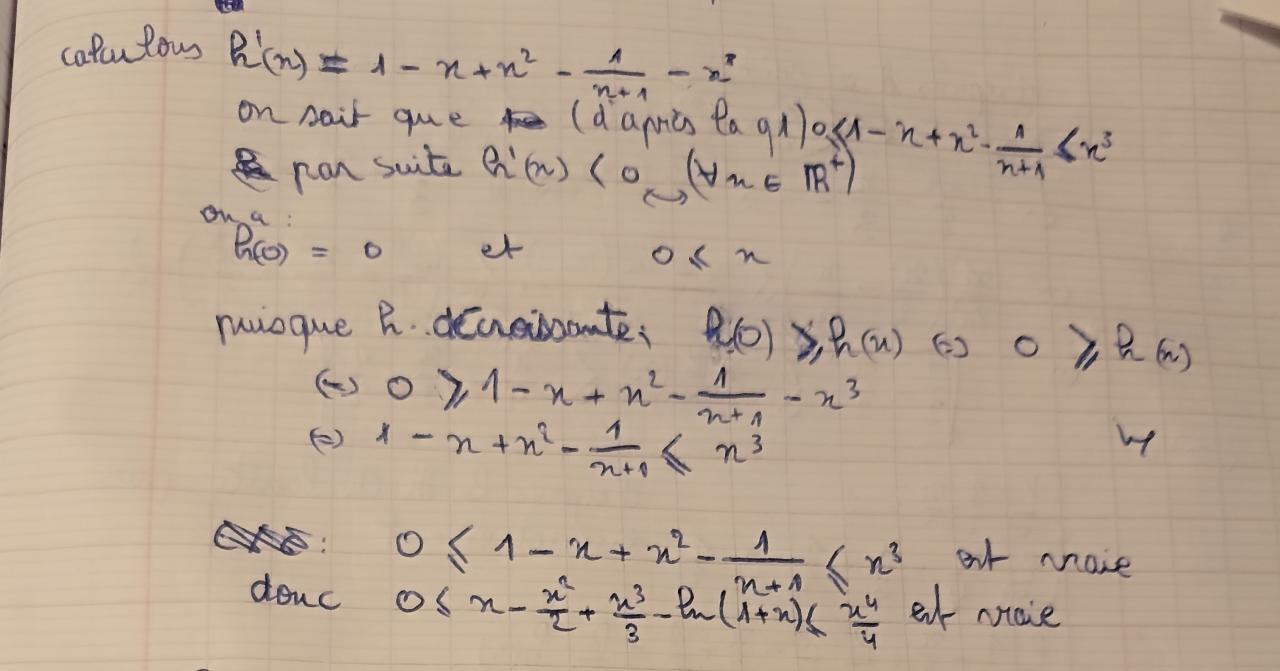 calculons h'(x) = 1 - x + x² - 1/(x+1) - x³
on sait que (d'après la q1) 0 ≤ 1 - x + x² - 1/(x+1) ≤ x³
par suite h'(x) < 0 (∀x ∈ ℝ⁺)
on a :
h(0) = 0 et 0 ≤ x
puisque h décroissante, h(0) ≥ h(x) ⇔ 0 ≥ h(x)
⇔ 0 ≥ 1 - x + x² - 1/(x+1) - x³
⇔ 1 - x + x² - 1/(x+1) ≤ x³
: 0 ≤ 1 - x + x² - 1/(x+1) ≤ x³ est vraie
donc 0 ≤ x - x²/2 + x³/3 - ln(1+x) ≤ x⁴/4 est vraie